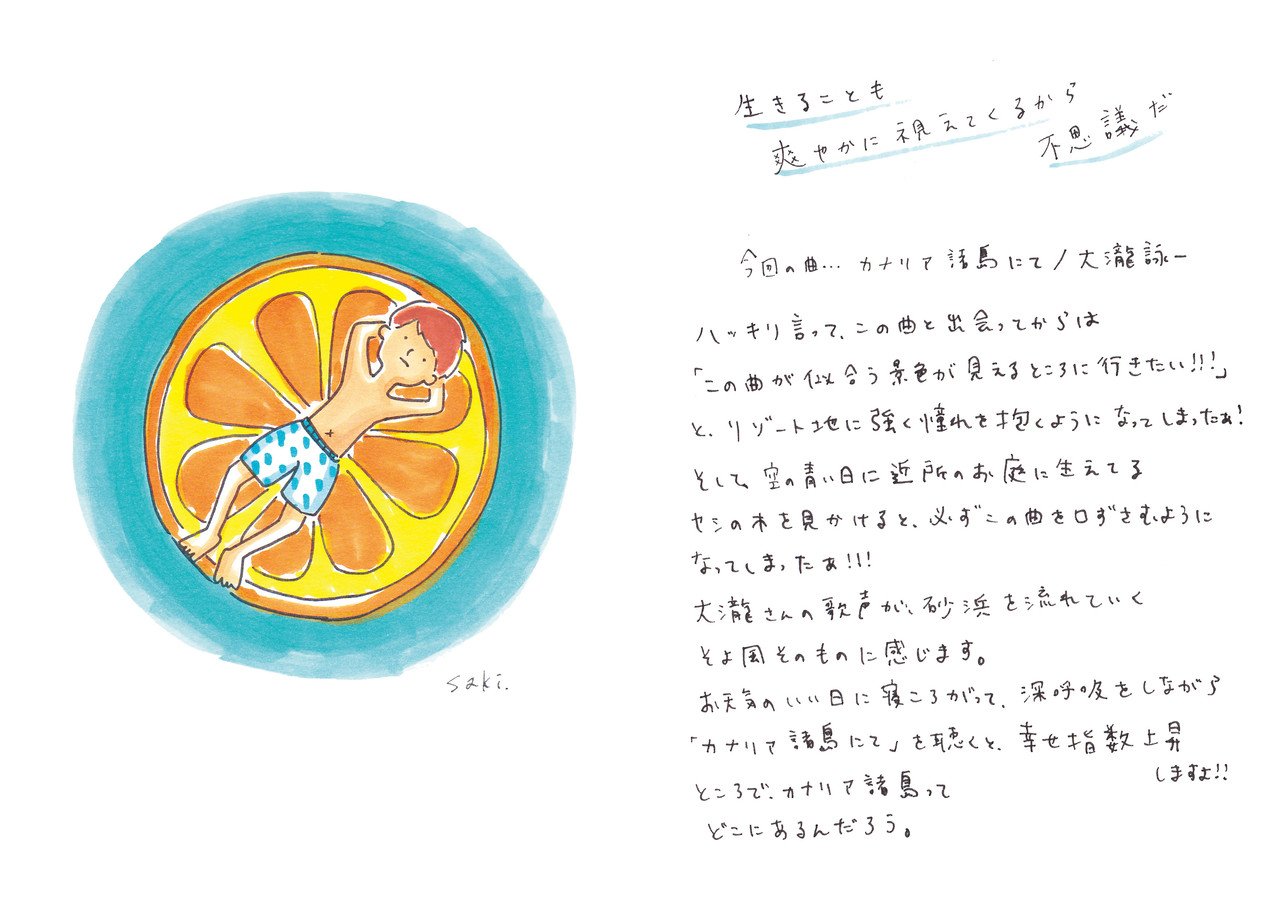 生きることも
爽やかに視えてくるから
不思議だ
今回の曲… カナリア諸島にて/大瀧詠一
ハッキリ言って、この曲と出会ってからは
「この曲が似合う景色が見えるところに行きたい!!!」
と、リゾート地に強く憧れを抱くようになってしまったぁ!
そして、空の青い日に近所のお庭に生えてる
ヤシの木を見かけると、必ずこの曲を口ずさむように
なってしまったぁ!!!
大瀧さんの歌声が、砂浜を流れていく
そよ風そのものに感じます。
お天気のいい日に寝ころがって、深呼吸をしながら
「カナリア諸島にて」を聴くと、幸せ指数上昇
しますよ!!
ところで、カナリア諸島って
どこにあるんだろう。
saki.